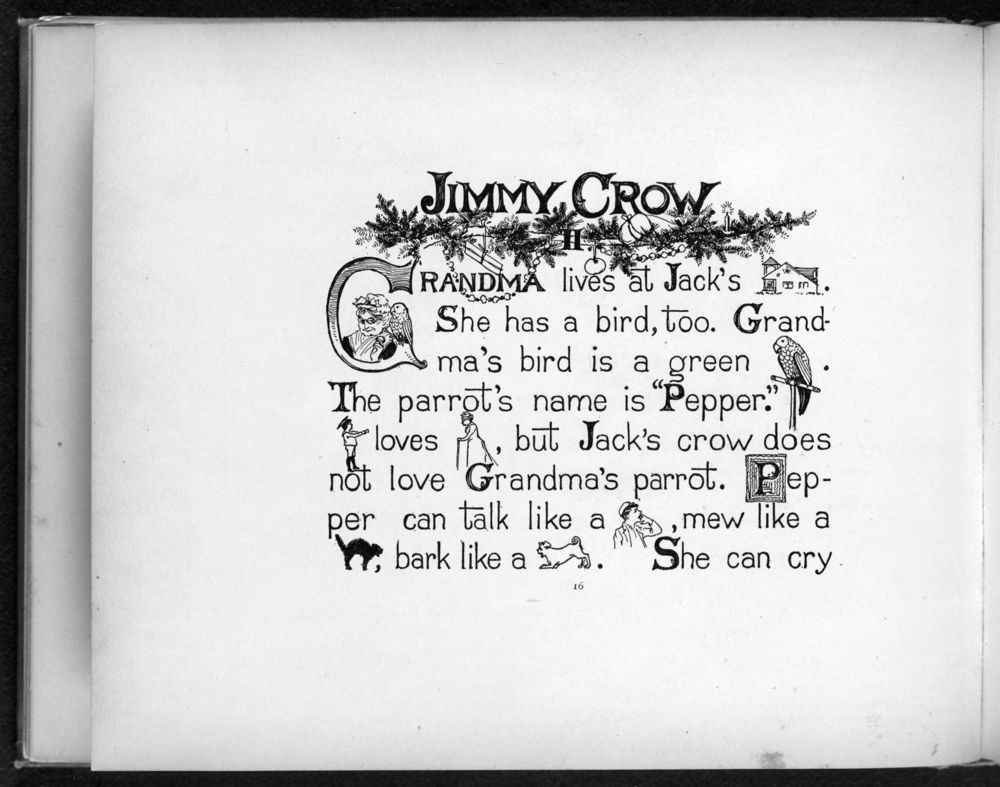 JIMMY CROW
II
GRANDMA lives at Jack's .
She has a bird, too. Grand-
ma's bird is a green .
The parrot's name is "Pepper."
loves , but Jack's crow does
not love Grandma's parrot. Pep-
per can talk like a , mew like a
, bark like a . She can cry
16